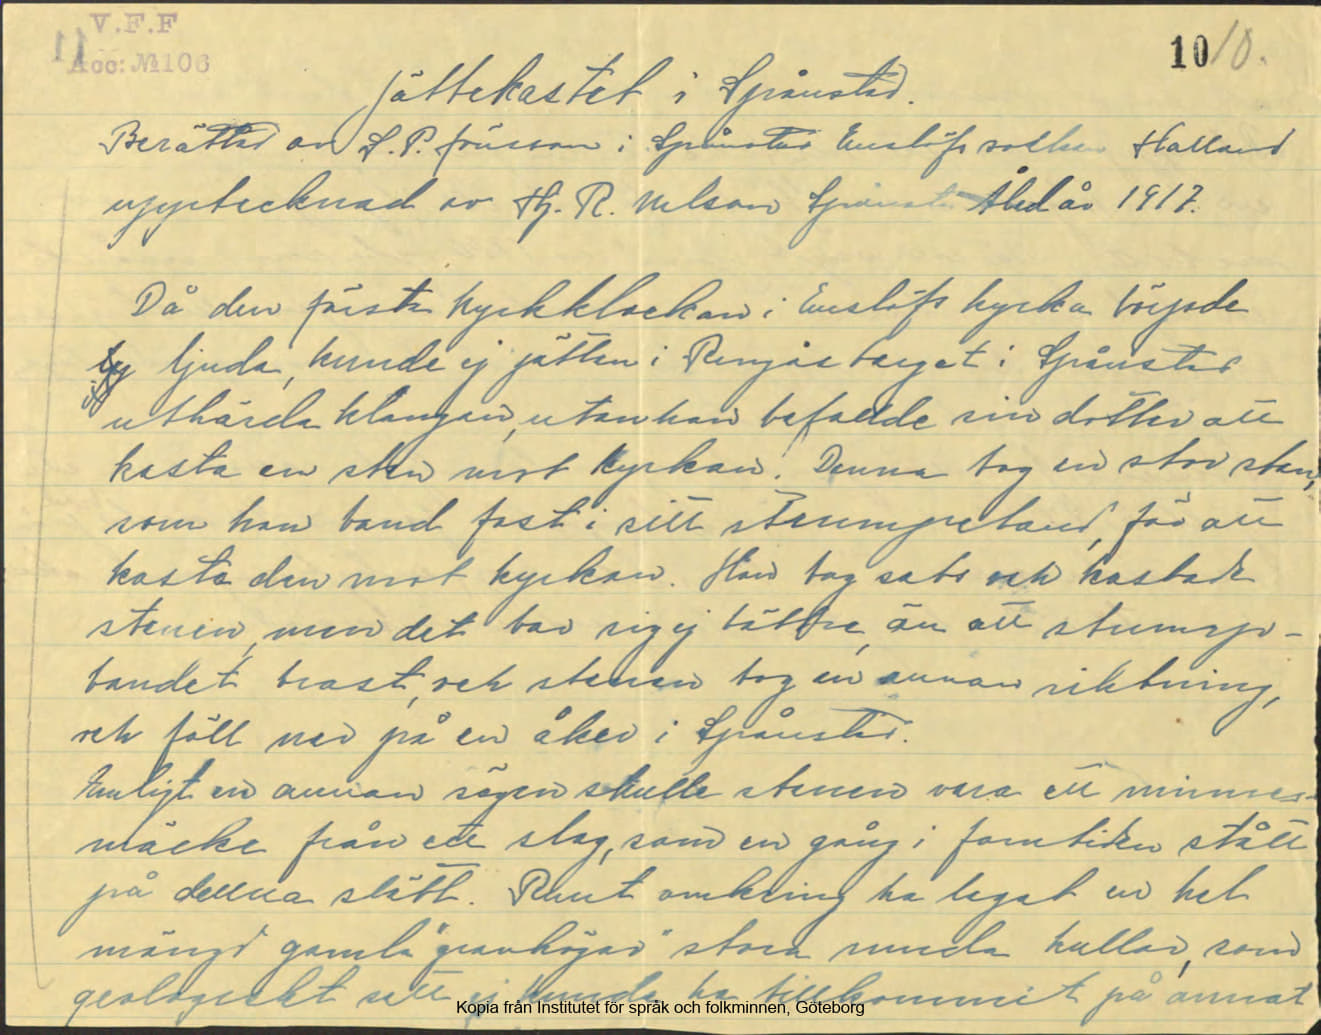 V.F.F
Acc: № 106
11
10 10.
Jättekastet i Spånstad.
Berättad av S. P. Jönsson i Spånstad Enslöfs socken Halland
upptecknad av Hj. R. Nelson Spånstad Åled år 1917.
Då den första kyrkklockan i Enslöfs kyrka började
ljuda, kunde ej jätten i Ringåsberget i Spånstad
uthärda klangen, utan han befallde sin dotter att
kasta en sten mot kyrkan. Denna tog en stor sten,
som hon band fast i sitt strumpeband, för att
kasta den mot kyrkan. Hon tog sats och kastade
stenen, men det bar sig ej bättre, än att strumpe-
bandet brast, och stenen tog en annan riktning,
och föll ned på en åker i Spånstad.
Enligt en annan sägen skulle stenen vara ett minnes-
märke från ett slag, som en gång i forntiden stått
på denna slätt. Runt omkring ha legat en hel
mängd gamla "gravhögar" stora runda kullar, som
geologiskt sett ej kunde ha tillkommit på annat
Kopia från Institutet för språk och folkminnen, Göteborg